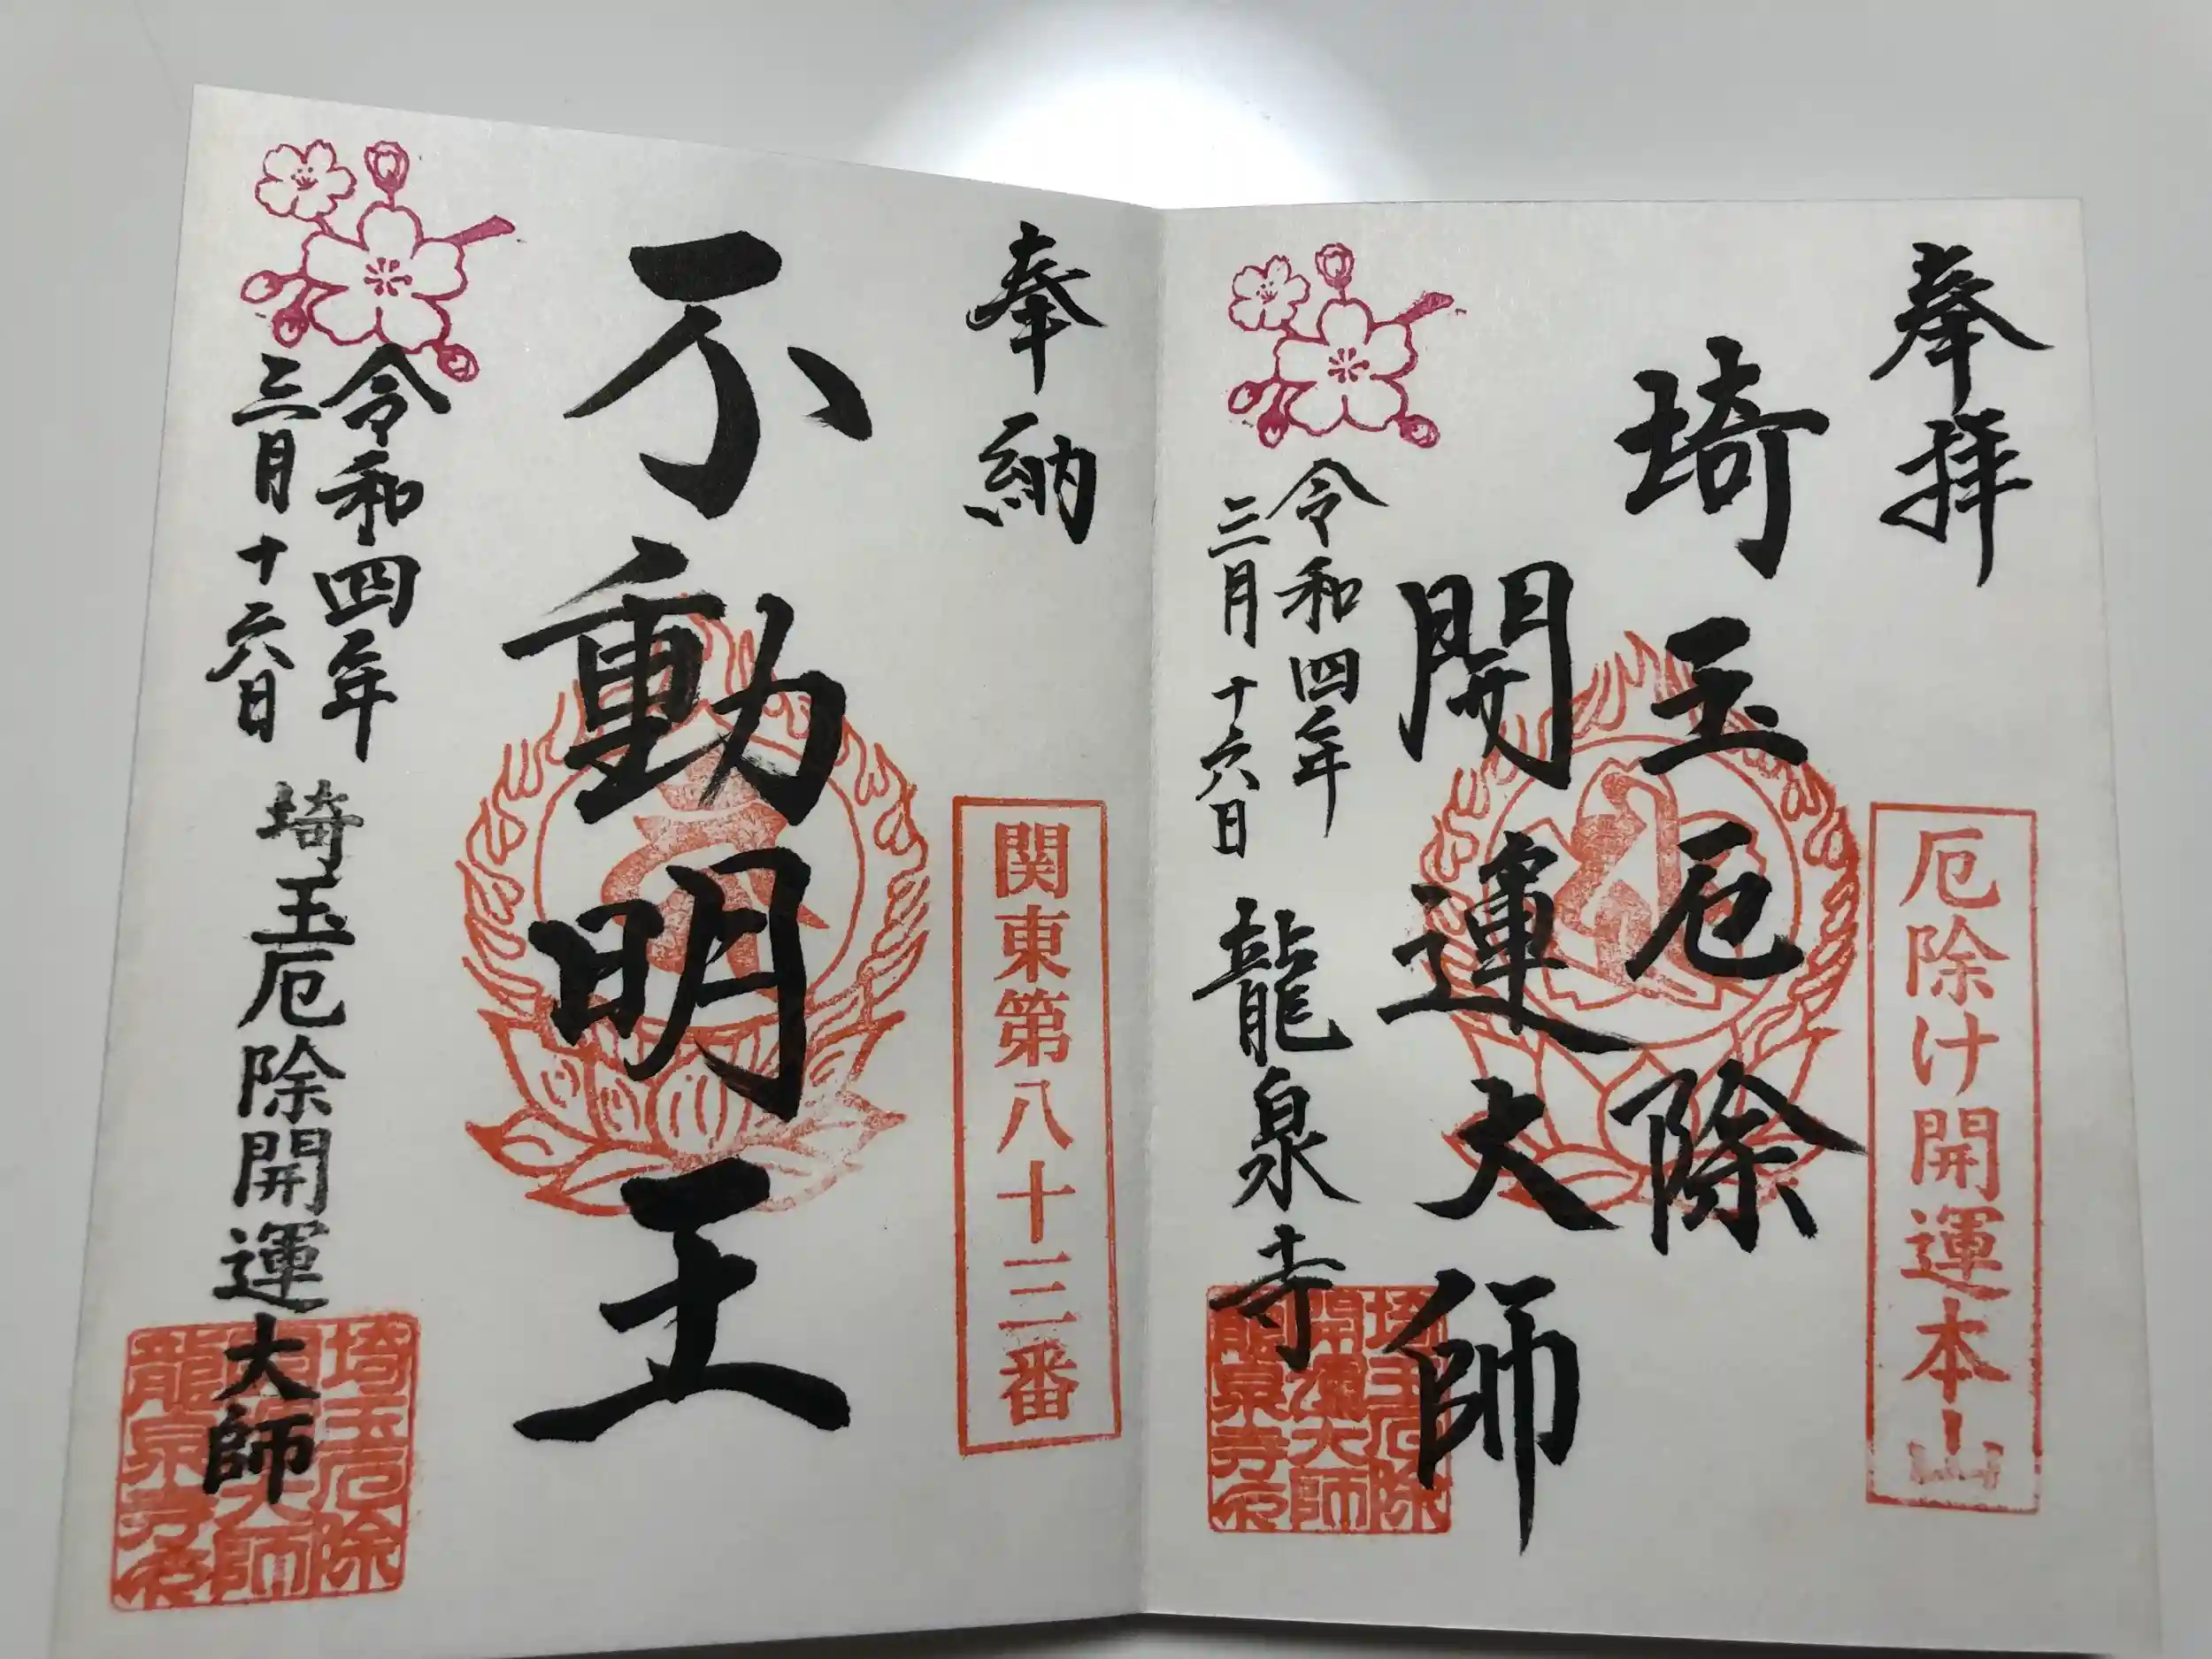 奉拝
厄除け開運本山
埼玉厄除
開運大師
令和四年
三月十六日
龍泉寺
埼玉厄除
開運大師
龍泉寺印
奉納
関東第八十三番
不動明王
令和四年
三月十六日
埼玉厄除開運大師
埼玉厄除
開運大師
龍泉寺印